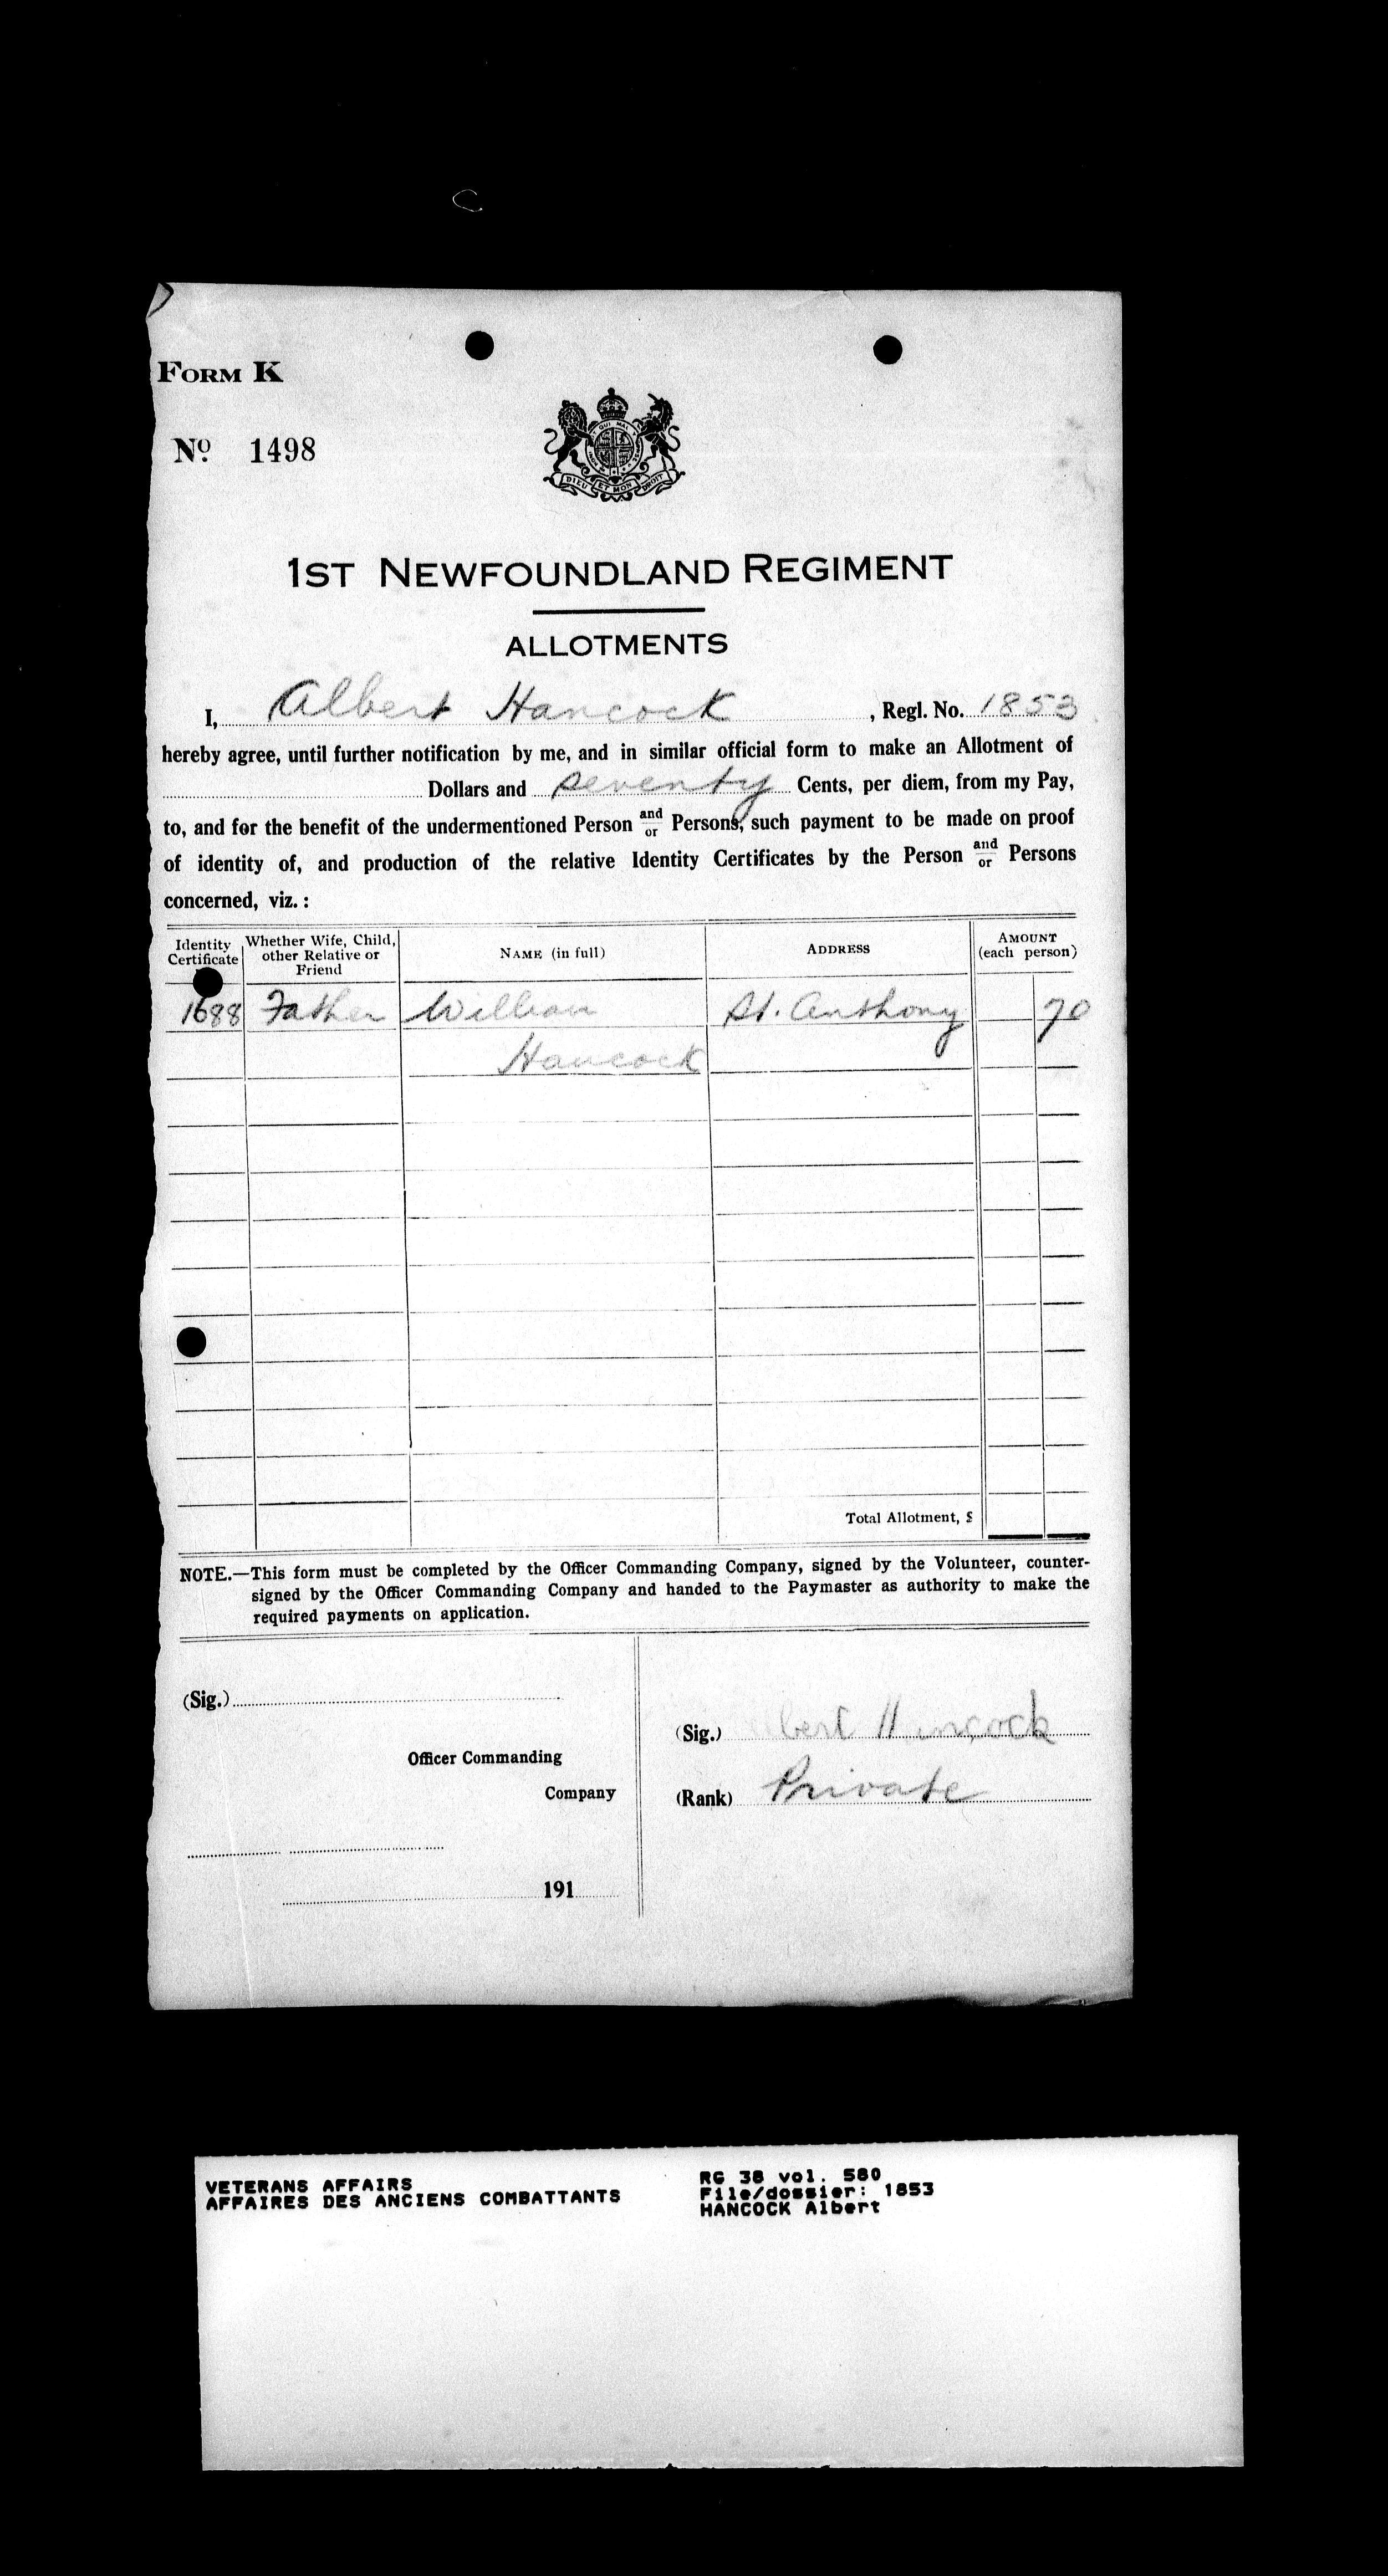 FORM K
No. 1498
QUI MAL Y
DIEU ET MON DROIT
1ST NEWFOUNDLAND REGIMENT
ALLOTMENTS
I, Albert Hancock, Regl. No. 1853
hereby agree, until further notification by me, and in similar official form to make an Allotment of
Dollars and seventy Cents, per diem, from my Pay,
to, and for the benefit of the undermentioned Person and/or Persons, such payment to be made on proof
of identity of, and production of the relative Identity Certificates by the Person and/or Persons
concerned, viz. :
Identity Certificate Whether Wife, Child, other Relative or Friend NAME (in full) ADDRESS AMOUNT (each person)
1688 Father William St. Anthony 70
Hancock
Total Allotment, $
NOTE.—This form must be completed by the Officer Commanding Company, signed by the Volunteer, counter-
signed by the Officer Commanding Company and handed to the Paymaster as authority to make the
required payments on application.
(Sig.)
(Sig.) Albert Hancock
Officer Commanding
Company
(Rank) Private
191
VETERANS AFFAIRS
AFFAIRES DES ANCIENS COMBATTANTS
RG 38 vol. 580
File/dossier: 1853
HANCOCK Albert